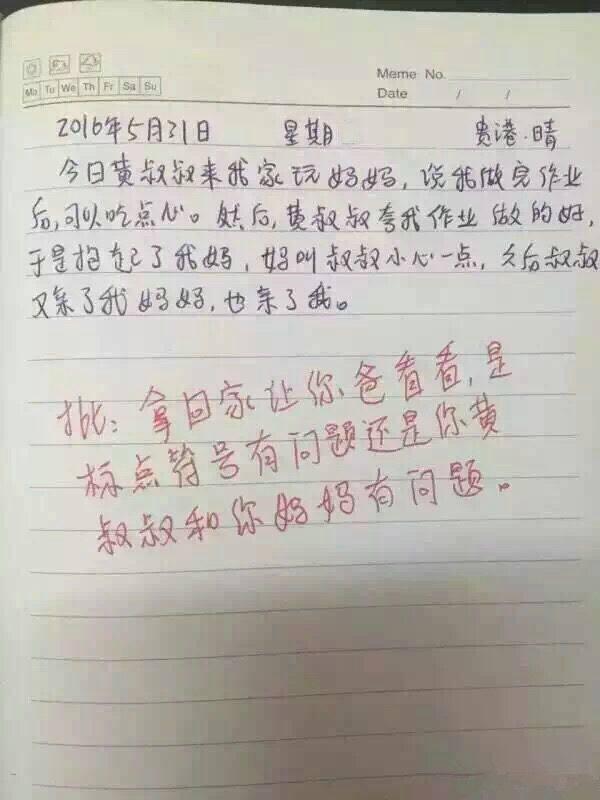 Meme No.
Mo Tu We Th Fr Sa Su
Date / /
2016年5月31日 星期 贵港·晴
今日黄叔叔来我家玩妈妈,说我做完作业
后,可以吃点心。然后,黄叔叔夸我作业做的好,
于是抱起了我妈,妈叫叔叔小心一点,之后叔叔
又亲了我妈妈,也亲了我。
批:拿回家让你爸看看,是
标点符号有问题还是你黄
叔叔和你妈妈有问题。